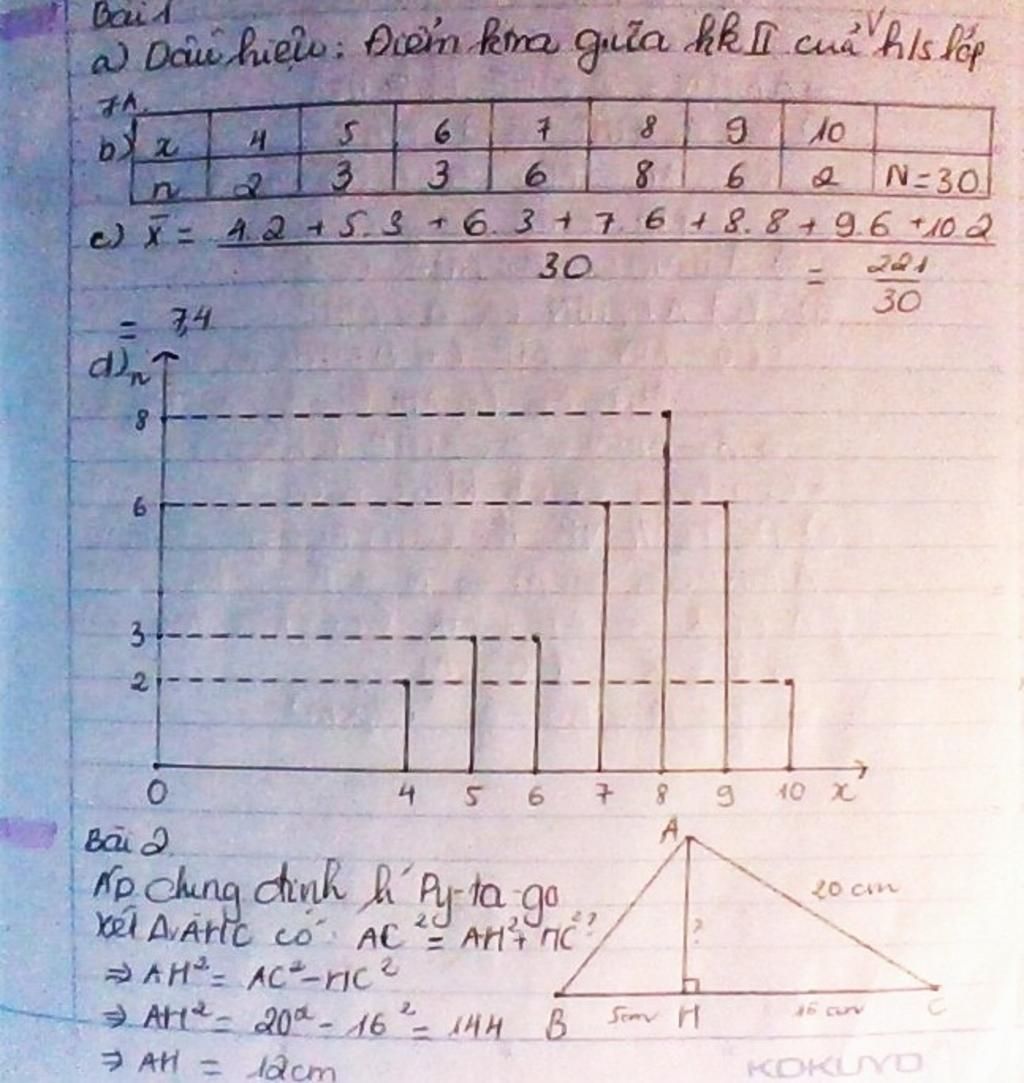 Bài 1
a) Dấu hiệu: Điểm ktra giữa hk II của hs lớp
7A.
b) x 4 5 6 7 8 9 10
n 2 3 3 6 8 6 2 N=30
c) x̄ = 4.2 + 5.3 + 6.3 + 7.6 + 8.8 + 9.6 + 10.2
30 = 221
30
= 7,4
d) n
8
6
3
2
0 4 5 6 7 8 9 10 x
Bài 2
AD chung định lí Py-ta-go
Xét ΔAHC có: AC² = AH² + HC²
⇒ AH² = AC² - HC²
⇒ AH² = 20² - 16² = 144
⇒ AH = 12cm
A
20 cm
?
B 5cm H 16 cm C
KOKUYO